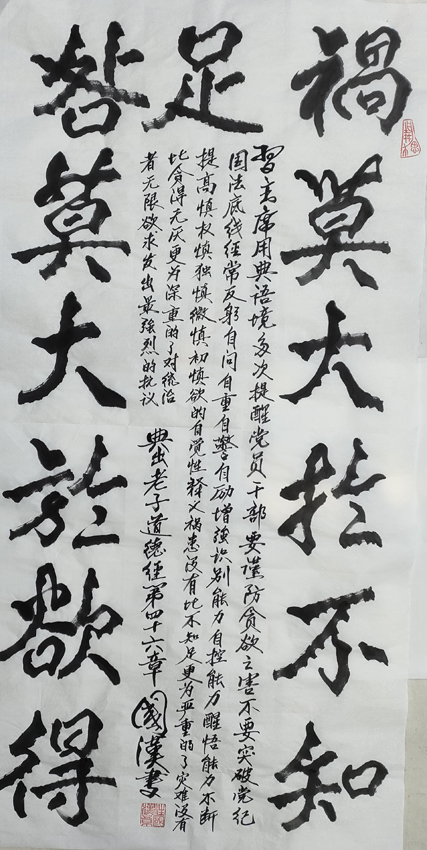 祸莫大於不知
足
咎莫大於欲得
习主席用典语境多次提醒党员干部要谨防贪欲之害不要突破党纪
国法底线经常反躬自问自重自警自励增强识别能力自控能力醒悟能力不断
提高慎权慎独慎微慎初慎欲的自觉性释义祸患没有比不知足更为严重的了灾难没有
比贪得无厌更为深重的了对统治
者无限欲求发出最强烈的抗议
典出老子道德经第四十六章
国汉书